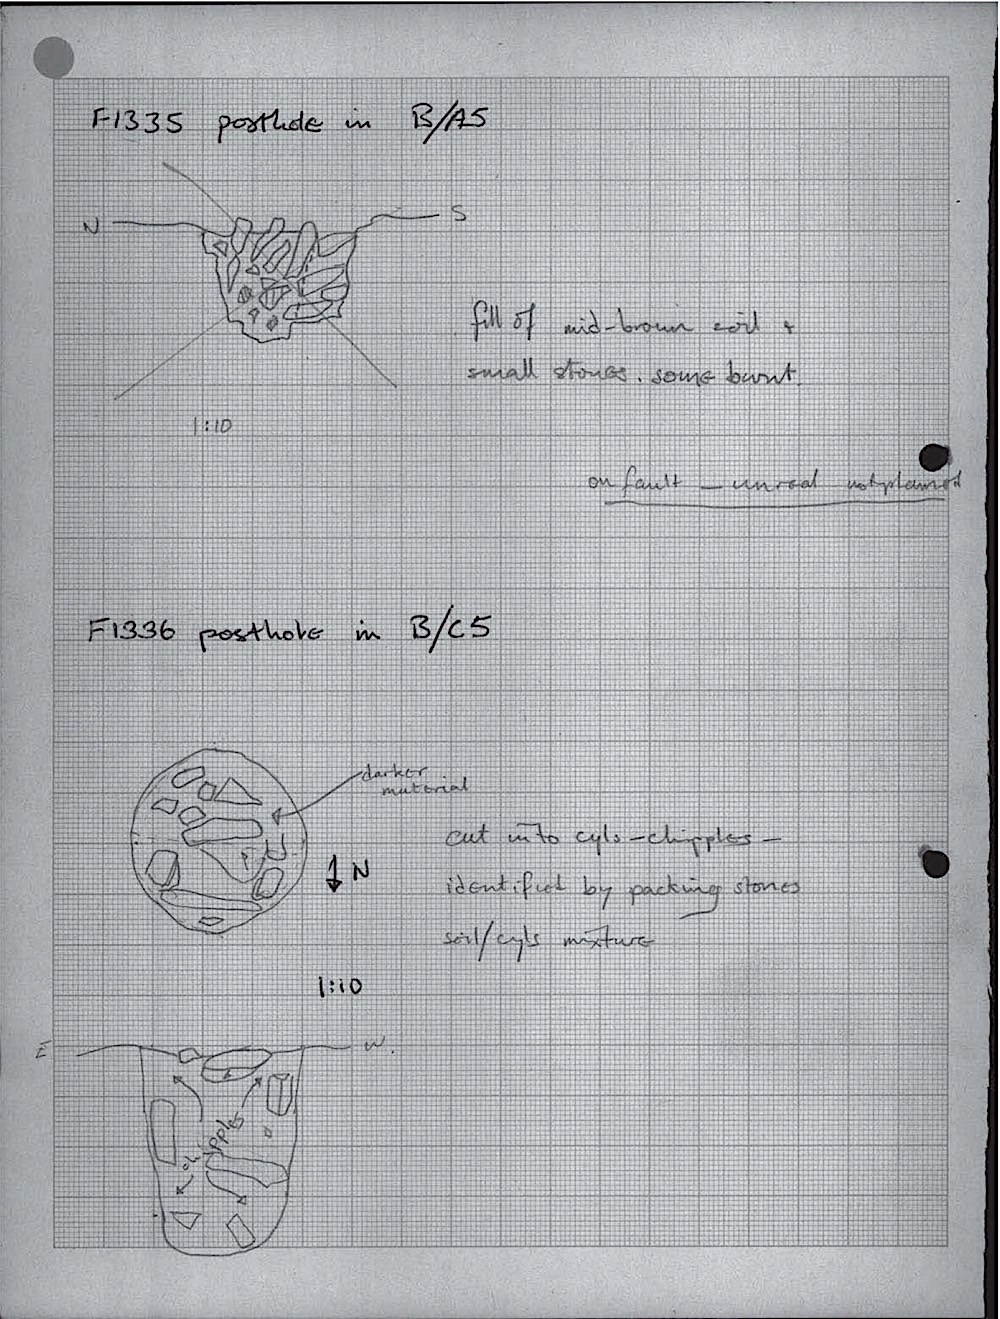 F1335 posthole in B/A5
N S
fill of mid-brown soil +
small stones. some burnt.
1:10
on fault — unreal not planned
F1336 posthole in B/C5
darker
material
cut into cyls-chipples-
identified by packing stones
N
soil/cyls mixture
1:10
E W.
chipples